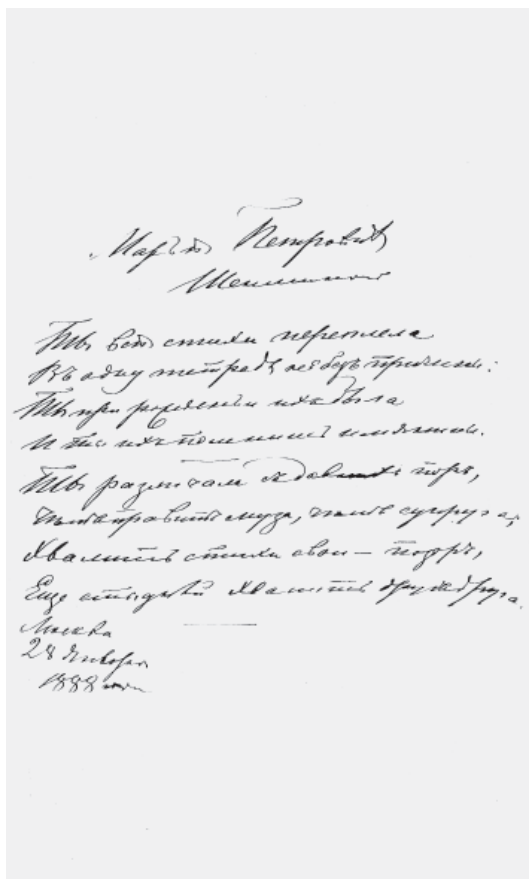 Марьѣ Петровнѣ
Шеншиной
Ты всѣ стихи переплела
Въ одну тетрадь не безъ причины:
Ты при рожденьи ихъ была
И ты ихъ помнишь именины.
Ты различала съ давнихъ поръ,
Чѣмъ правитъ муза, чѣмъ супруга,
Хвалить стихи свои — позоръ,
Еще стыднѣй хвалить другъ друга.
Москва
28 Января
1888 года